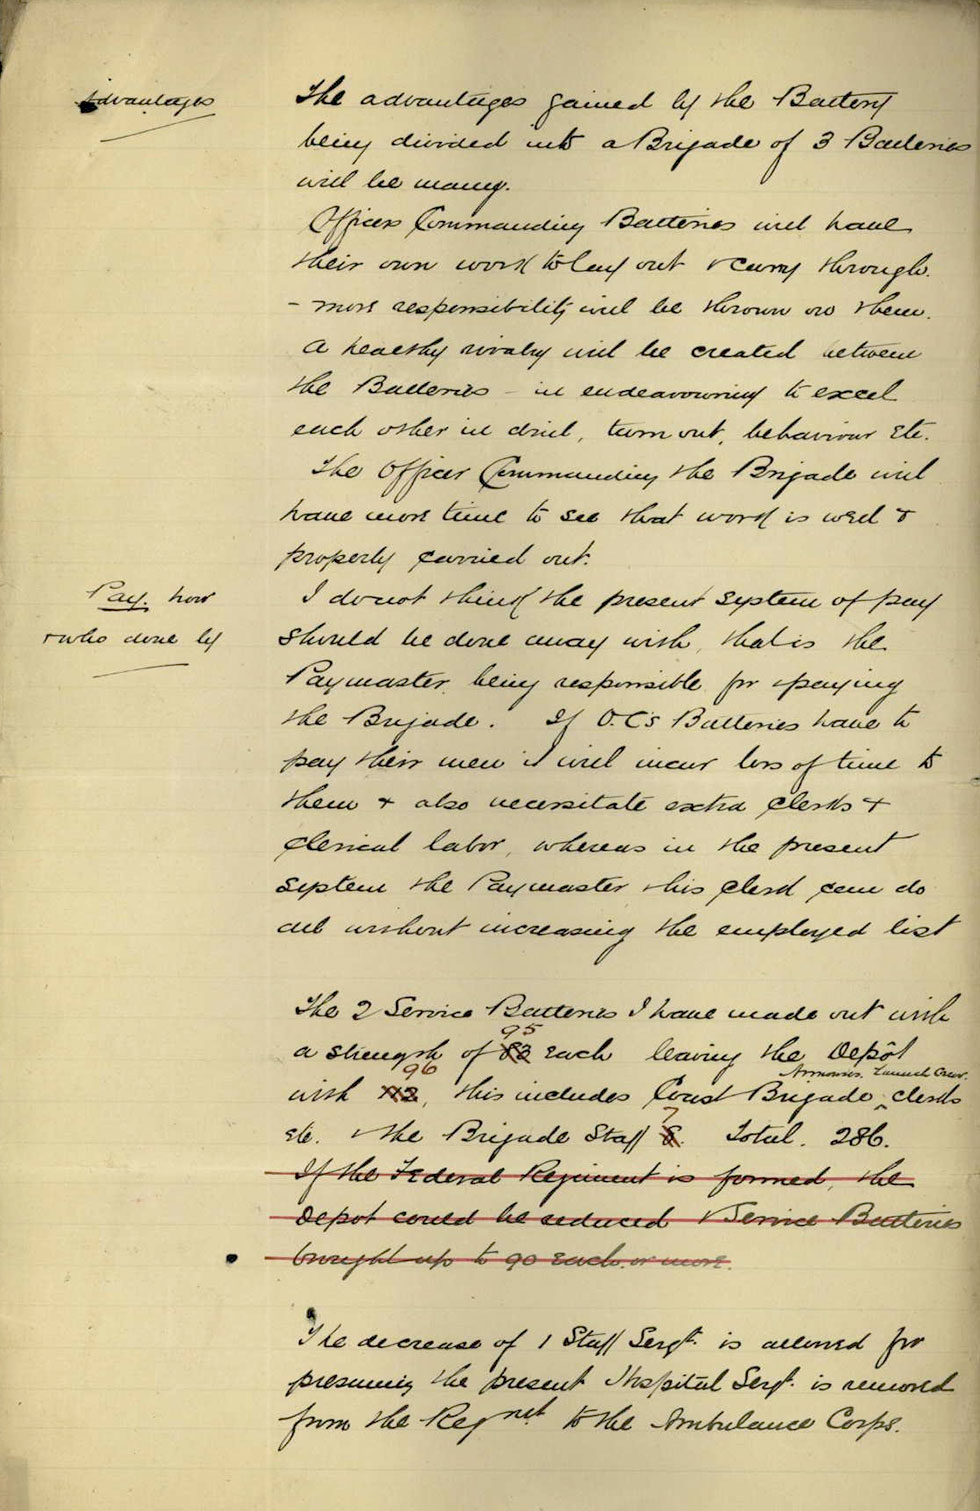 Advantages
The advantages gained by the Battery
being divided into a Brigade of 3 Batteries
will be many.
Officers Commanding Batteries will have
their own work to lay out & carry through.
- more responsibility will be thrown on them.
A healthy rivalry will be created between
the Batteries - in endeavouring to excel
each other in drill, turn out, behaviour etc.
The Officer Commanding the Brigade will
have more time to see that work is well &
properly carried out.
Pay. how
& who done by
I do not think the present system of pay
should be done away with, that is the
Paymaster being responsible for paying
the Brigade. If O.C's Batteries have to
pay their men it will incur loss of time to
them & also necessitate extra clerks &
clerical labor, whereas in the present
system the Paymaster & his clerk can do
all without increasing the employed list
The 2 Service Batteries I have made out with
95
a strength of 83 each leaving the Depôt
96
Armourer. Launch Crew.
with 112, this includes Coast Brigade, clerks
7
etc. & the Brigade Staff 8. Total. 286.
If the Federal Regiment is formed, the
Depot could be reduced & Service Batteries
brought up to 90 each or more.
The decrease of 1 Staff Sergt. is allowed for
presuming the present Hospital Sergt. is removed
from the Regmt to the Ambulance Corps.